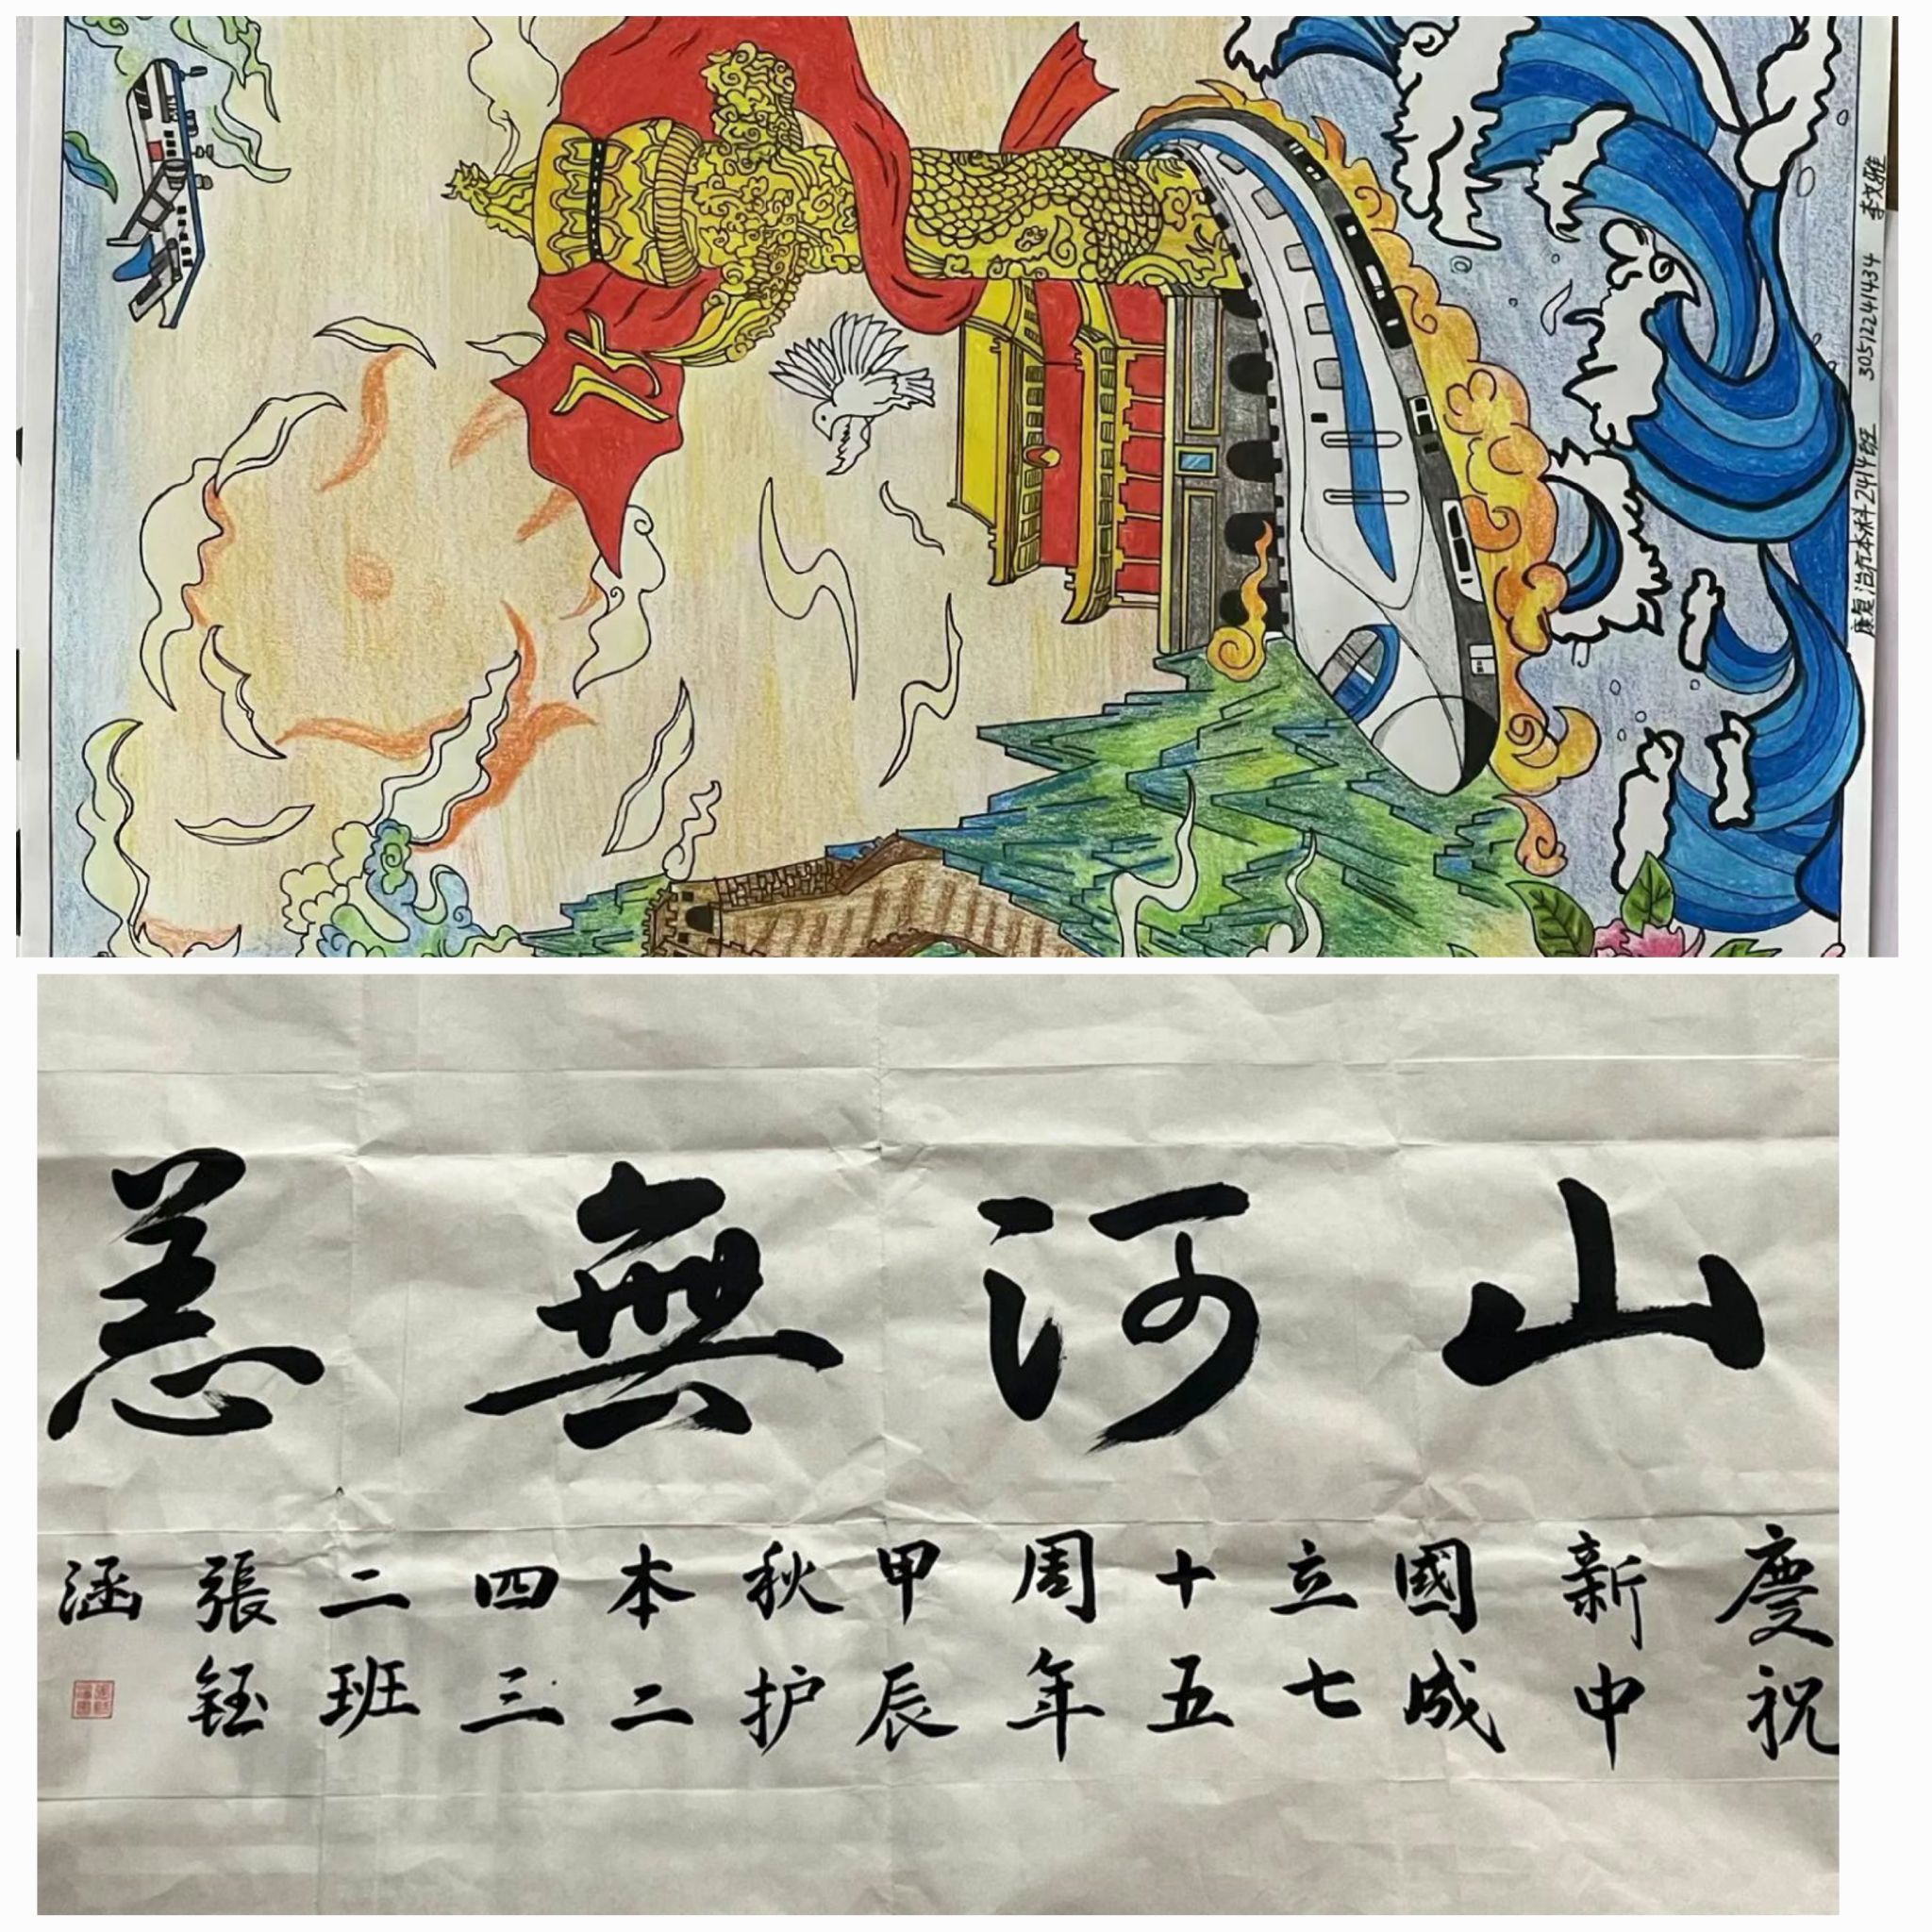 康复治疗本科2414班 305122441434
山河無恙
慶祝
新中
國成
立七
十五
周年
甲辰
秋护
本二
四三
二班
張钰
涵